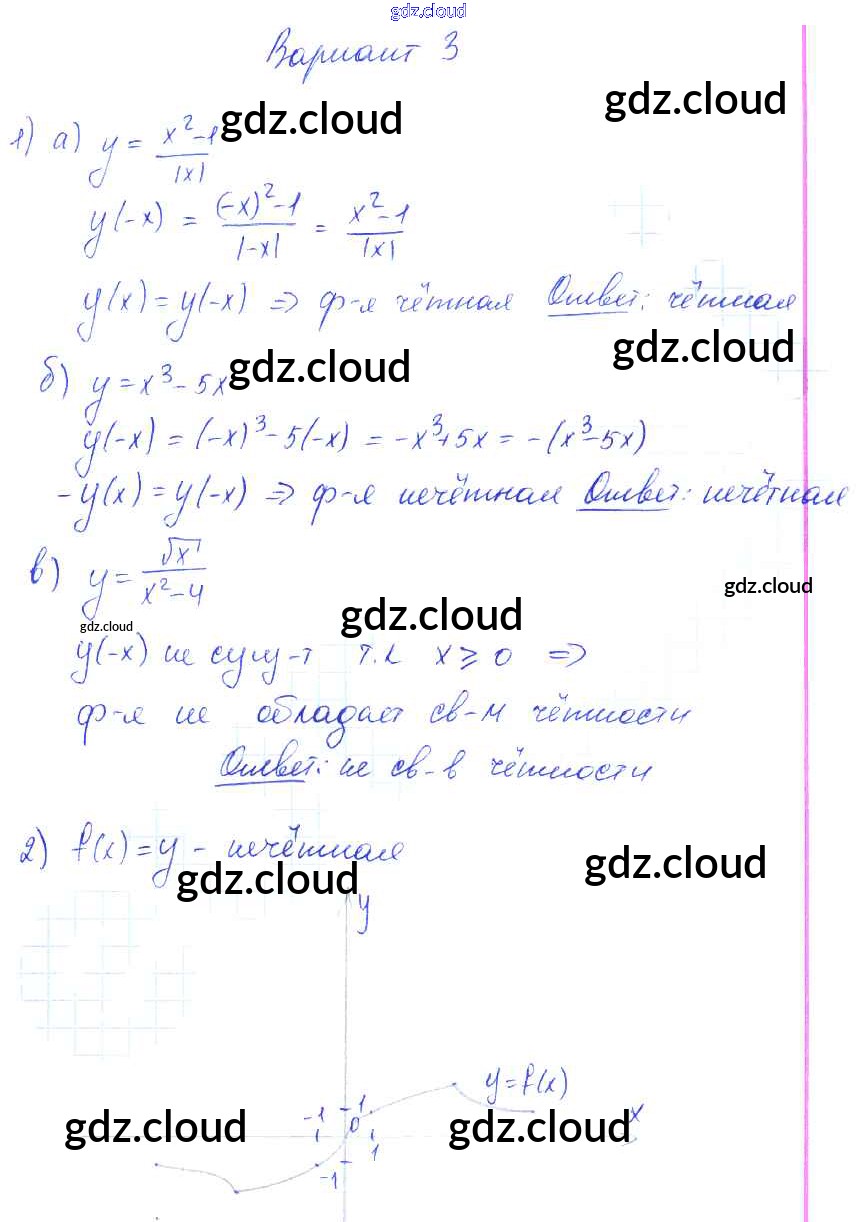 gdz.cloud
Вариант 3
gdz.cloud
gdz.cloud
1) а) y = (x²-1)/|x|
y(-x) = ((-x)²-1)/|-x| = (x²-1)/|x|
y(x) = y(-x) => ф-я чётная Ответ: чётная
gdz.cloud
gdz.cloud
б) y = x³ - 5x
y(-x) = (-x)³ - 5(-x) = -x³+5x = -(x³-5x)
-y(x) = y(-x) => ф-я нечётная Ответ: нечётная
в) y = √x/(x²-4)
gdz.cloud
gdz.cloud
gdz.cloud
y(-x) не сущ-т т.к x ≥ 0 =>
ф-я не обладает св-м чётности
Ответ: не св-в чётности
2) f(x) = y - нечётная
gdz.cloud
gdz.cloud
y
y=f(x)
-1 1 0 x
gdz.cloud
gdz.cloud
1
-1